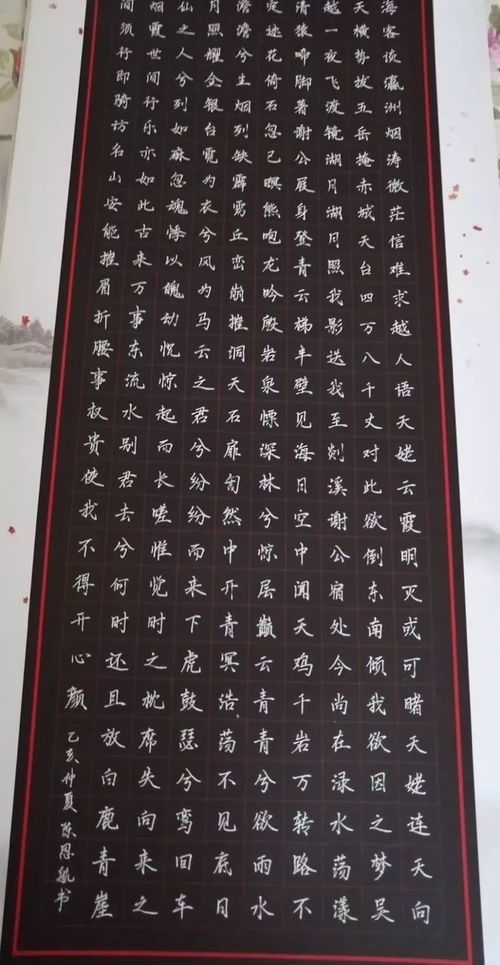 海客谈瀛洲烟涛微茫信难求越人语天姥云霞明灭或可睹天姥连天向
天横势拔五岳掩赤城天台四万八千丈对此欲倒东南倾我欲因之梦吴
越一夜飞渡镜湖月湖月照我影送我至剡溪谢公宿处今尚在渌水荡漾
清猿啼脚著谢公屐身登青云梯半壁见海日空中闻天鸡千岩万转路不
定迷花倚石忽已暝熊咆龙吟殷岩泉慄深林兮惊层巅云青青兮欲雨水
澹澹兮生烟列缺霹雳丘峦崩摧洞天石扉訇然中开青冥浩荡不见底日
月照耀金银台霓为衣兮风为马云之君兮纷纷而来下虎鼓瑟兮鸾回车
仙之人兮列如麻忽魂悸以魄动恍惊起而长嗟惟觉时之枕席失向来之
烟霞世间行乐亦如此古来万事东流水别君去兮何时还且放白鹿青崖
间须行即骑访名山安能摧眉折腰事权贵使我不得开心颜
乙亥仲夏陈恩航书